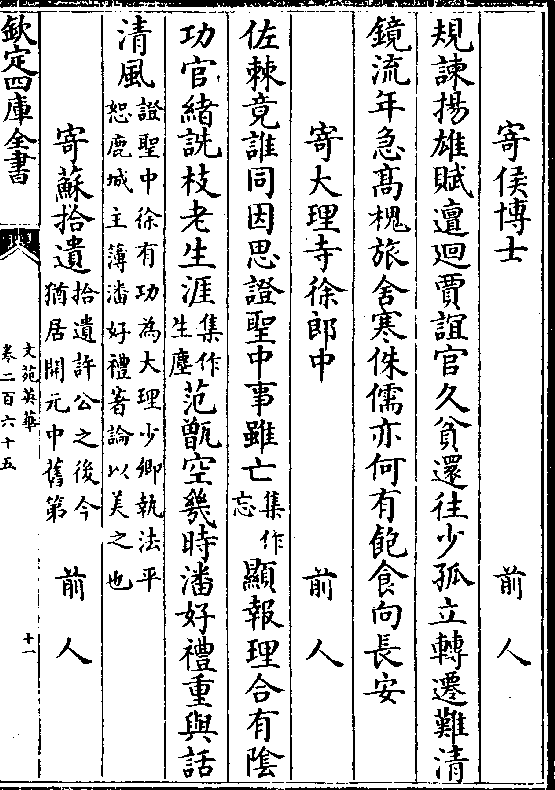 寄侯博士　前人
規諫揚雄賦邅迴賈誼官久貧還往少孤立轉遷難清
鏡流年急髙槐旅舍寒侏儒亦何有飽食向長安
寄大理寺徐郎中　前人
佐棘竟誰同因思證聖中事雖亡集作忘顯報理合有隂
功官緒詵枝老生涯集作生塵范甑空幾時潘好禮重與話
清風證聖中徐有功為大理少卿執法平
恕鹿城主薄潘好禮著論以美之也
寄蘇拾遺拾遺許公之後今
猶居開元中舊第　前人
欽定四庫全書
文苑英華
卷二百六十五
十一